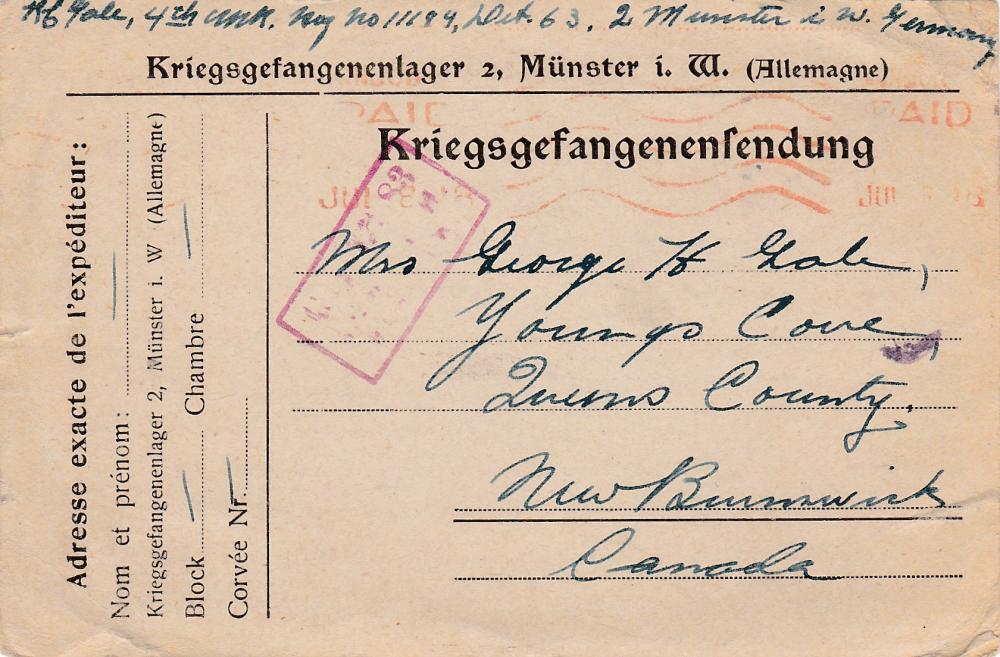 Gale, 4th CMR. Reg no 11189, Det. 63, 2 Munster i W. Germany
Kriegsgefangenenlager 2, Münster i. W. (Allemagne)
PAID
PAID
Kriegsgefangenenſendung
Mrs George H Gale,
Youngs Cove,
Queens County,
New Brunswick
Canada
Adresse exacte de l'expéditeur:
Nom et prénom:
Kriegsgefangenenlager 2, Münster i. W (Allemagne)
Block Chambre
Corvée Nr.